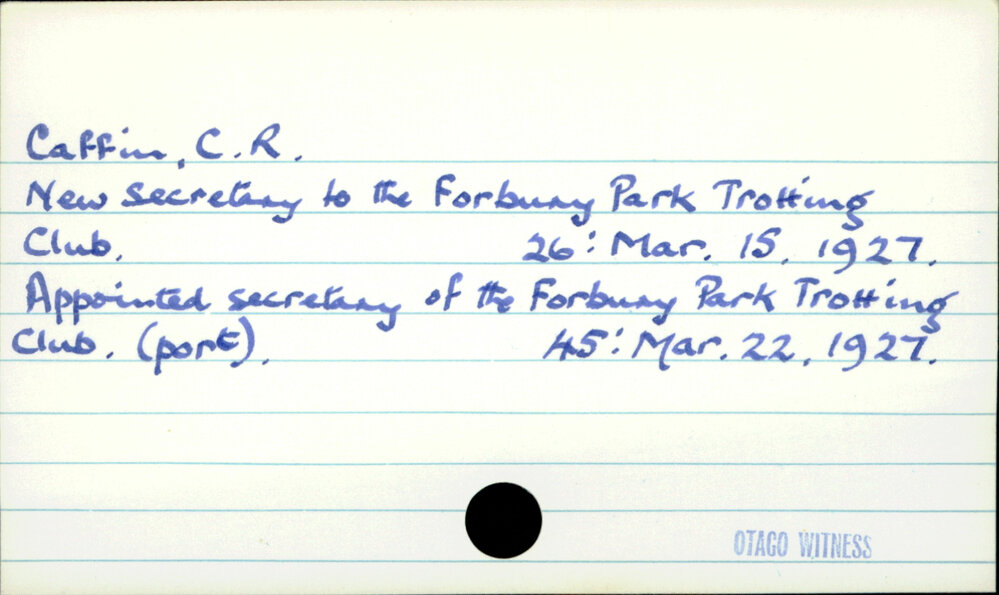 Caffin, C.R.
New secretary to the Forbury Park Trotting
Club. 26: Mar. 15, 1927.
Appointed secretary of the Forbury Park Trotting
Club. (port). 45: Mar. 22, 1927.
OTAGO WITNESS